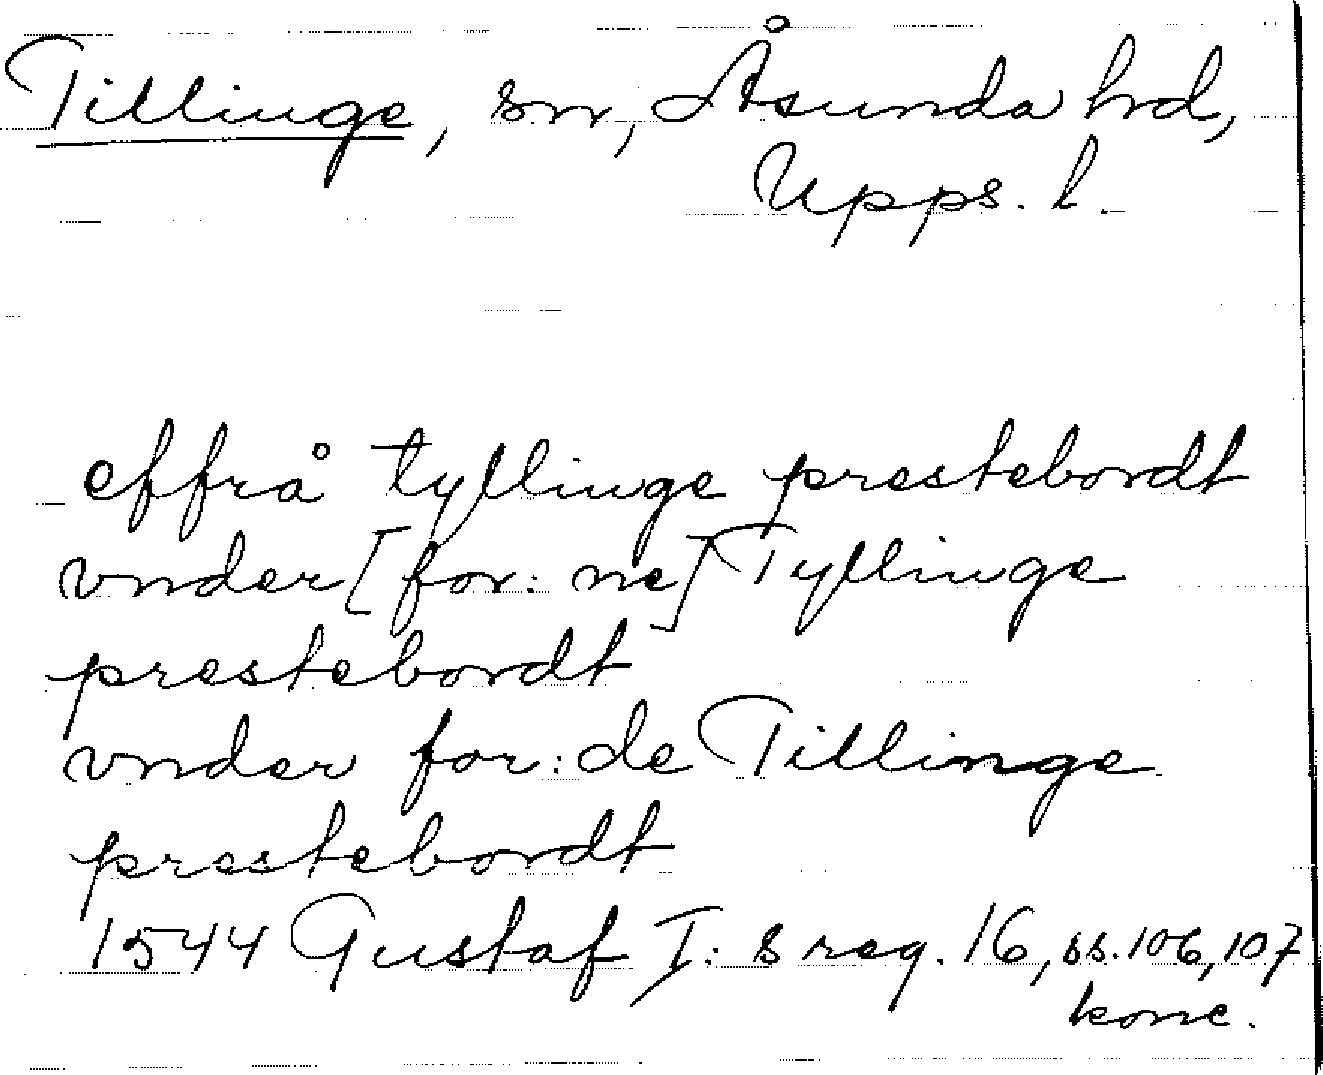 Tillinge, sn, Åsunda hrd,
Upps. l.
effrå tyllinge prestebordt
vnder [for: ne] Tyllinge
prestebordt
vnder for: de Tillinge
prestebordt
1544 Gustaf I: s reg. 16, ss. 106, 107
konc.